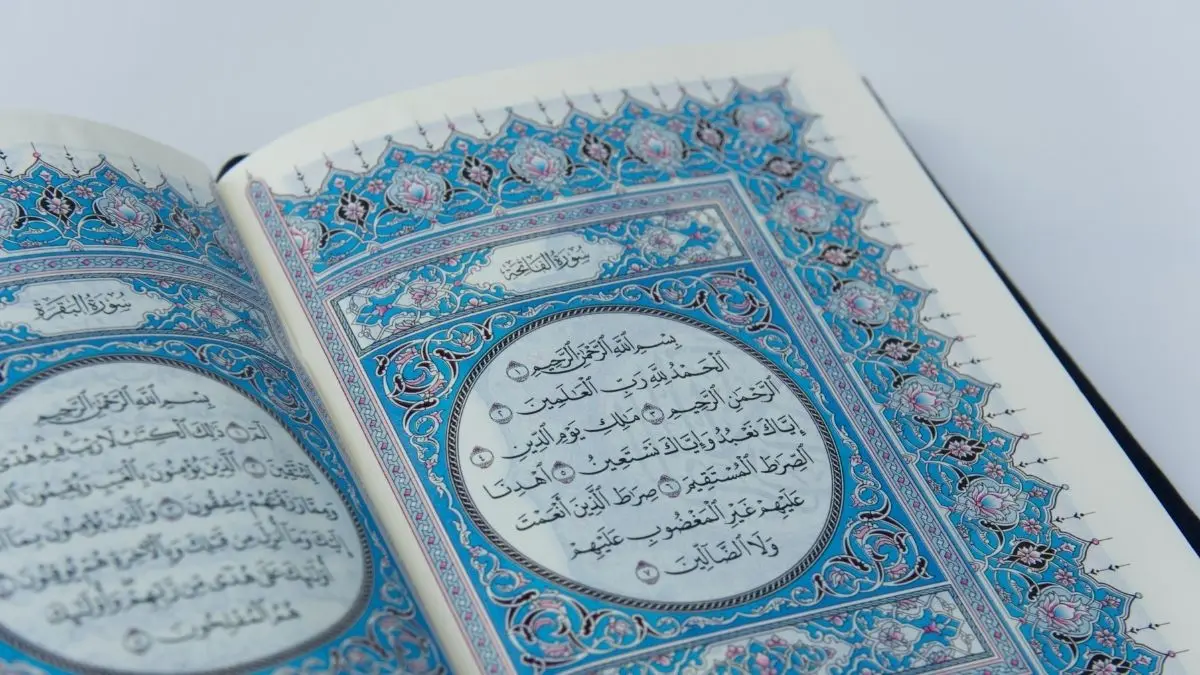 سُورَةُ الفَاتِحَةِ
بِسْمِ ٱللَّهِ ٱلرَّحْمَٰنِ ٱلرَّحِيمِ ١
ٱلْحَمْدُ لِلَّهِ رَبِّ ٱلْعَٰلَمِينَ ٢
ٱلرَّحْمَٰنِ ٱلرَّحِيمِ ٣ مَٰلِكِ يَوْمِ ٱلدِّينِ ٤
إِيَّاكَ نَعْبُدُ وَإِيَّاكَ نَسْتَعِينُ ٥ ٱهْدِنَا
ٱلصِّرَٰطَ ٱلْمُسْتَقِيمَ ٦ صِرَٰطَ ٱلَّذِينَ أَنْعَمْتَ
عَلَيْهِمْ غَيْرِ ٱلْمَغْضُوبِ عَلَيْهِمْ
وَلَا ٱلضَّآلِّينَ ٧
سُورَةُ البَقَرَةِ
بِسْمِ ٱللَّهِ ٱلرَّحْمَٰنِ ٱلرَّحِيمِ
الٓمٓ ١ ذَٰلِكَ ٱلْكِتَٰبُ لَا رَيْبَ فِيهِ هُدًى
لِّلْمُتَّقِينَ ٢ ٱلَّذِينَ يُؤْمِنُونَ بِٱلْغَيْبِ وَيُقِيمُونَ
وَمِمَّا رَزَقْنَٰهُمْ يُنفِقُونَ ٣ وَٱلَّذِينَ يُؤْمِنُونَ بِمَآ
إِلَيْكَ وَمَآ أُنزِلَ مِن قَبْلِكَ وَبِٱلْأَخِرَةِ هُمْ يُوقِنُونَ ٤
أُو۟لَٰٓئِكَ عَلَىٰ هُدًى مِّن رَّبِّهِمْ وَأُو۟لَٰٓئِكَ
هُمُ ٱلْمُفْلِحُونَ ٥